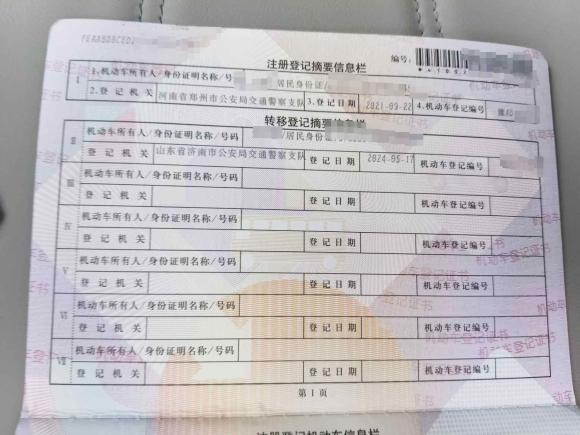 注册登记摘要信息栏
编号:
I 1.机动车所有人/身份证明名称/号 居民身份证/
2.登记机关 河南省郑州市公安局交通警察支队 3.登记日期 2021-09-22 4.机动车登记编号
转移登记摘要信息栏
II 机动车所有人/身份证明名称/号码 /居民身份证/
登记机关 山东省济南市公安局交通警察支队 登记日期 2024-05-17 机动车登记编号
III 机动车所有人/身份证明名称/号码
登记机关 登记日期 机动车登记编号
IV 机动车所有人/身份证明名称/号码
登记机关 登记日期 机动车登记编号
V 机动车所有人/身份证明名称/号码
登记机关 登记日期 机动车登记编号
VI 机动车所有人/身份证明名称/号码
登记机关 登记日期 机动车登记编号
VII 机动车所有人/身份证明名称/号码
登记机关 登记日期 机动车登记编号
第1页
注册登记机动车信息栏